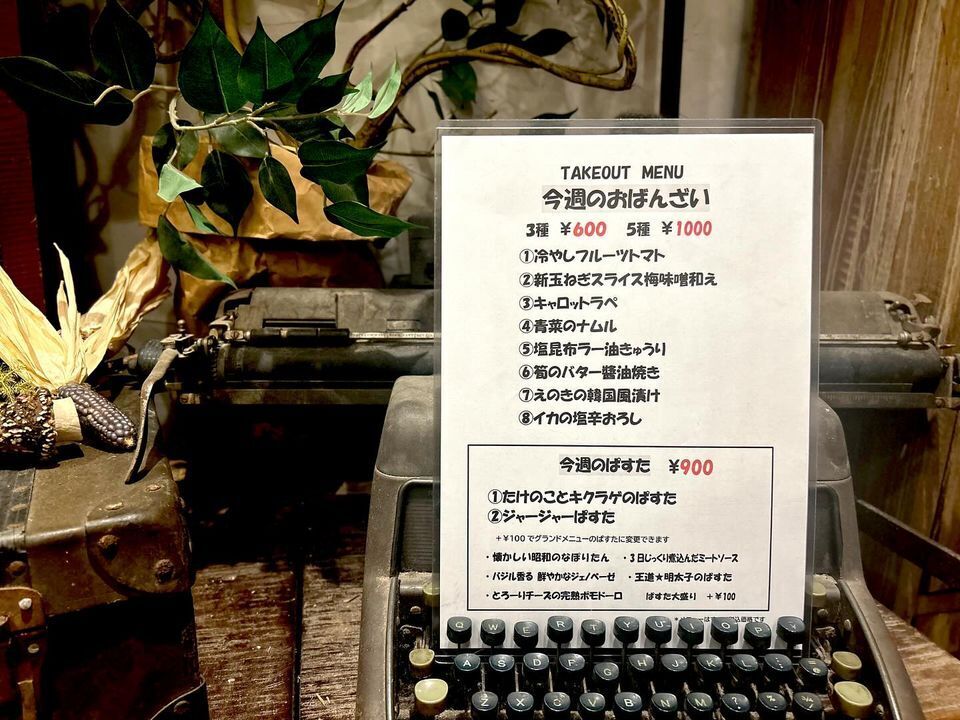 TAKEOUT MENU
今週のおばんざい
3種 ¥600 5種 ¥1000
①冷やしフルーツトマト
②新玉ねぎスライス梅味噌和え
③キャロットラペ
④青菜のナムル
⑤塩昆布ラー油きゅうり
⑥筍のバター醬油焼き
⑦えのきの韓国風漬け
⑧イカの塩辛おろし
今週のぱすた ¥900
①たけのことキクラゲのぱすた
②ジャージャーぱすた
+¥100でグランドメニューのぱすたに変更できます
・懐かしい昭和のなぽりたん ・3日じっくり煮込んだミートソース
・バジル香る 鮮やかなジェノベーゼ ・王道★明太子のぱすた
・とろーりチーズの完熟ポモドーロ ぱすた大盛り +¥100
Q W E R T Y U O P
A S D F G H J K L
Z X C V B N M